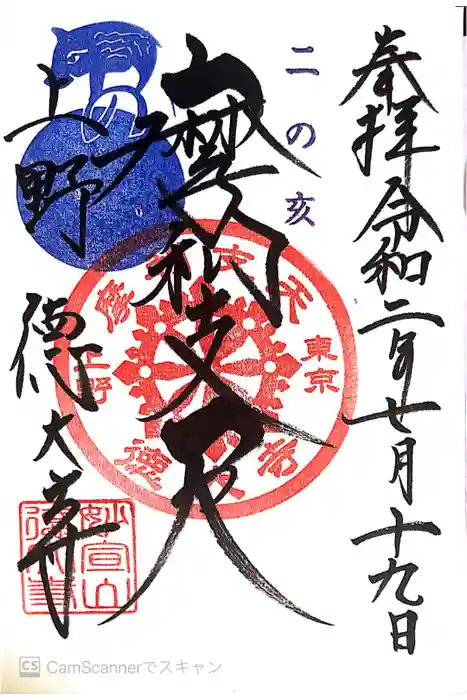 奉拝 令和二年七月十九日
二の亥
摩利支天
上野
徳大寺
摩利支天
東京
上野
徳大寺
妙宣山
徳大寺
CS CamScannerでスキャン